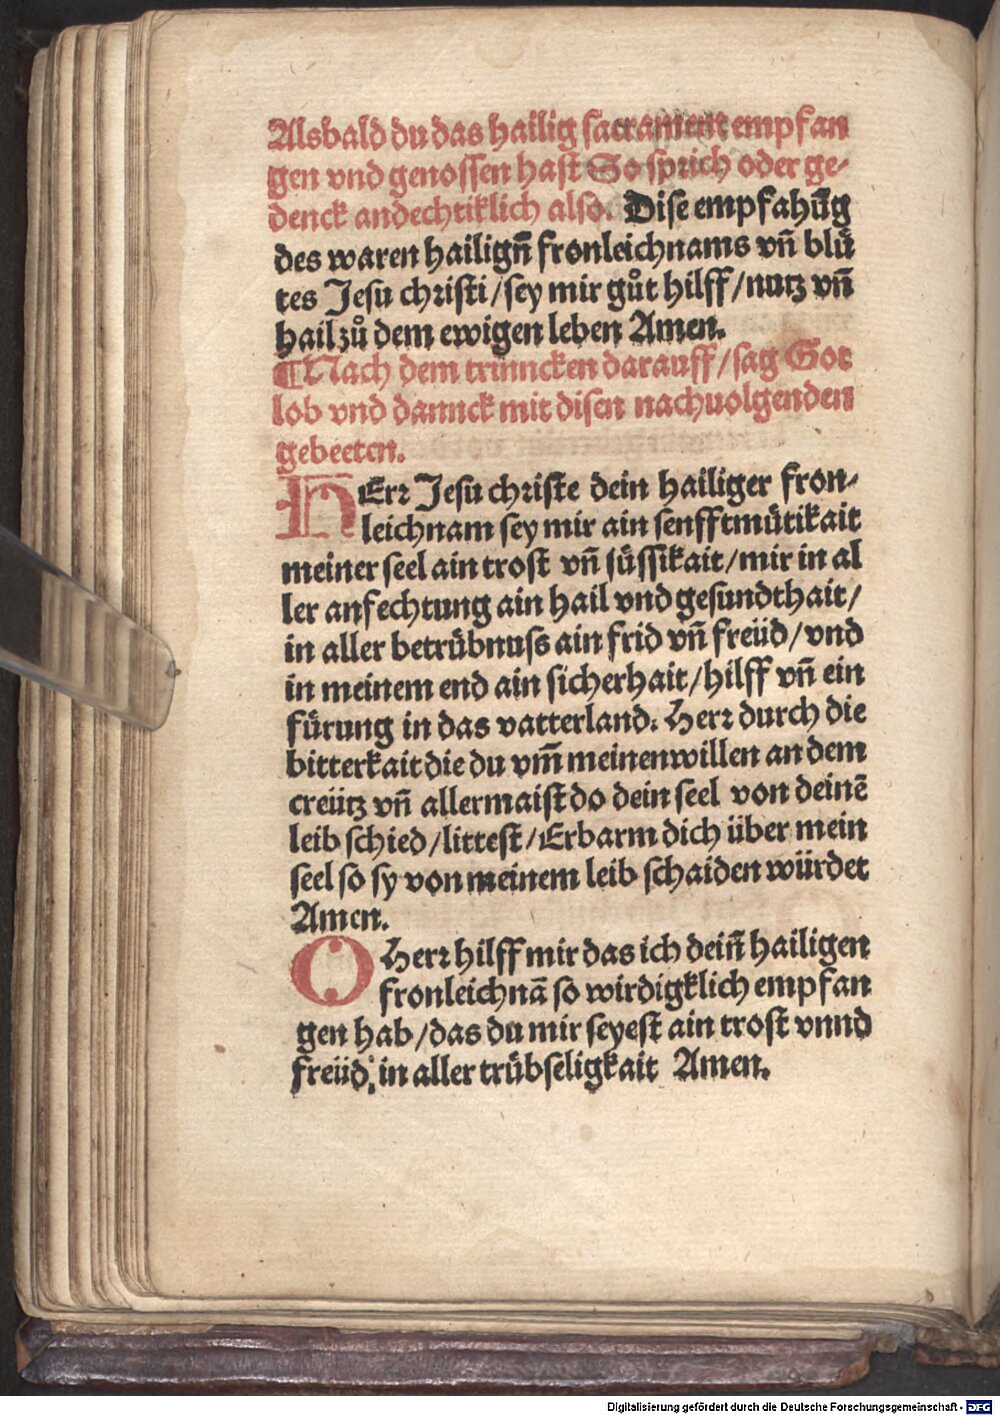 Alsbald du das hailig sacrament empfan
gen vnd genossen hast So sprich oder ge-
denck andechtiklich also. Dise empfahūg
des waren hailigñ fronleichnams vñ blů
tes Jesu christi/sey mir gůt hilff/nutz vñ
hail zů dem ewigen leben Amen.
¶Nach dem trinncken darauff/sag Got
lob vnd dannck mit disen nachuolgenden
gebeeten.
HErr Jesu christe dein hailiger fron-
leichnam sey mir ain senfftmütikait
meiner seel ain trost vñ süssikait/mir in al
ler anfechtung ain hail vnd gesundthait/
in aller betrübnuss ain frid vñ freüd/vnd
in meinem end ain sicherhait/hilff vñ ein
fürung in das vatterland. Herr durch die
bitterkait die du vm̄ meinen willen an dem
creütz vñ allermaist do dein seel von deinē
leib schied/littest/Erbarm dich über mein
seel so sy von meinem leib schaiden würdet
Amen.
O Herr hilff mir das ich deiñ hailigen
fronleichnā so wirdigklich empfan
gen hab/das du mir seyest ain trost vnnd
freüd, in aller trübseligkait Amen.
Digitalisierung gefördert durch die Deutsche Forschungsgemeinschaft - DFG